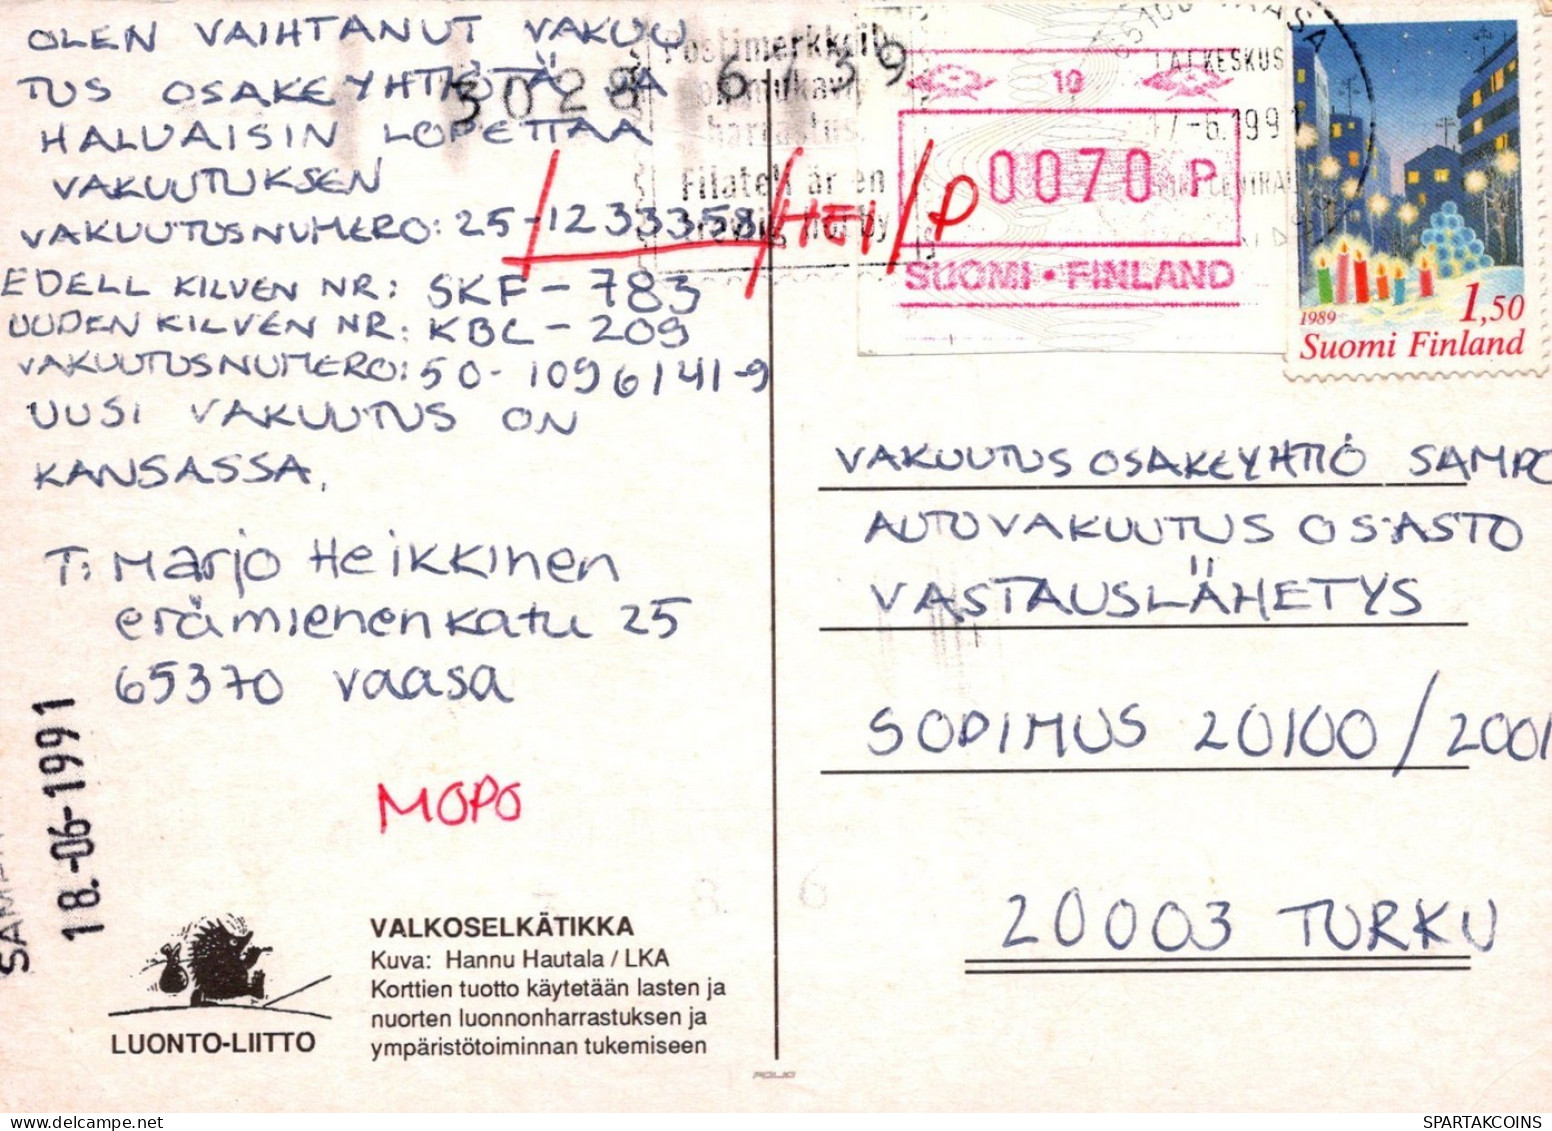 OLEN VAIHTANUT VAKUU
TUS OSAKEYHTIÖTÄ JA
HALUAISIN LOPETTAA
VAKUUTUKSEN
VAKUUTUSNUMERO: 25-1233358
EDELL KILVEN NR: SKF-783
UUDEN KILVEN NR: KBC-209
VAKUUTUSNUMERO: 50-1096141-9
UUSI VAKUUTUS ON
KANSASSA.
T: Marjo Heikkinen
erämienenkatu 25
65370 Vaasa
MOPO
/HEI/P
3028 6 39
Postimerkkeily
on mukava
harrastus.
Filateli är en
trevlig hobby
65100 VAASA
17-6.1991
10
0070 P
SUOMI • FINLAND
1989 1,50
Suomi Finland
VAKUUTUS OSAKEYHTIÖ SAMPO
AUTOVAKUUTUS OSASTO
VASTAUSLÄHETYS
SOPIMUS 20100/2001
20003 TURKU
18.-06-1991
LUONTO-LIITTO
VALKOSELKÄTIKKA
Kuva: Hannu Hautala / LKA
Korttien tuotto käytetään lasten ja
nuorten luonnonharrastuksen ja
ympäristötoiminnan tukemiseen
FOLIO
SPARTAKCOINS